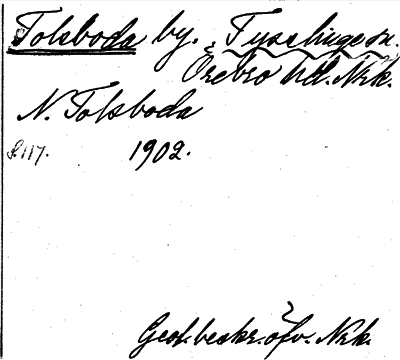 Tolsboda by. Tysslinge sn.
Örebro hd. Nrk.
N. Tolsboda
S. 117. 1902.
Geof. beskr. öfv. Nrk.